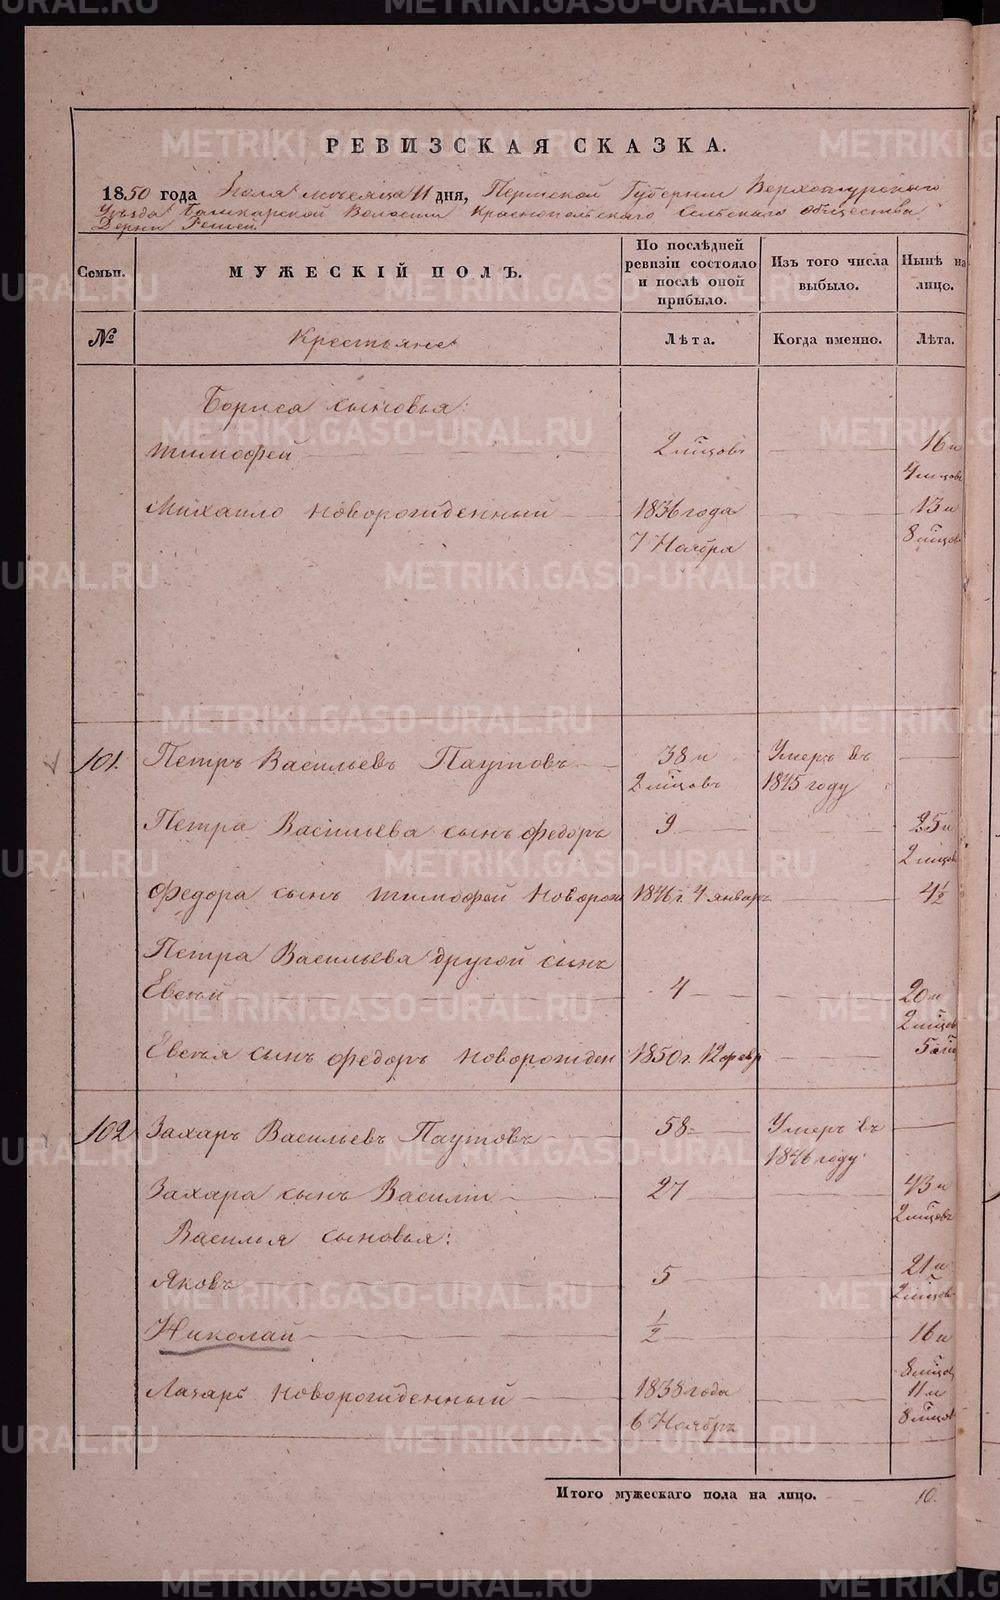 РЕВИЗСКАЯ СКАЗКА.
1850 года Июля месяца 11 дня, Пермской Губернии Верхотурского
Уезда Башкарской Волости Краснопольского Сельского общества
Дерни
Семьи. МУЖЕСКІЙ ПОЛЪ. По послѣдней ревизіи состояло и послѣ оной прибыло. Изъ того числа выбыло. Нынѣ на лицо.
№ Крестьяне Лѣта. Когда именно. Лѣта.
Бориса сыновья:
Тимофей 2 мѣцовъ 16 и
4 мѣцовъ
Михайло новорожденный 1836 года 13 и
7 Ноября 8 мѣцовъ
101. Петръ Васильевъ Паутовъ 38 и Умеръ въ
2 мѣцовъ 1845 году
Петра Васильева сынъ Федоръ 9 25 и
2 мѣцов
Федора сынъ Тимофей Новорож 1846 г. 4 январь 4½
Петра Васильева другой сынъ
Евсѣй 4 20 и
2 мѣцов
Евсѣя сынъ Федоръ новорожден 1850 г. 12 февр 5 мѣц
102 Захаръ Васильевъ Паутовъ 58 Умеръ въ
1846 году
Захара сынъ Василій 27 43 и
2 мѣцовъ
Василья сыновья:
Яковъ 5 21 и
2 мѣцов
Николай ½ 16 и
8 мѣцов
Лазарь новорожденный 1838 года 11 и
6 Ноябрь 8 мѣцов
Итого мужескаго пола на лицо. 10.
METRIKI.GASO-URAL.RU